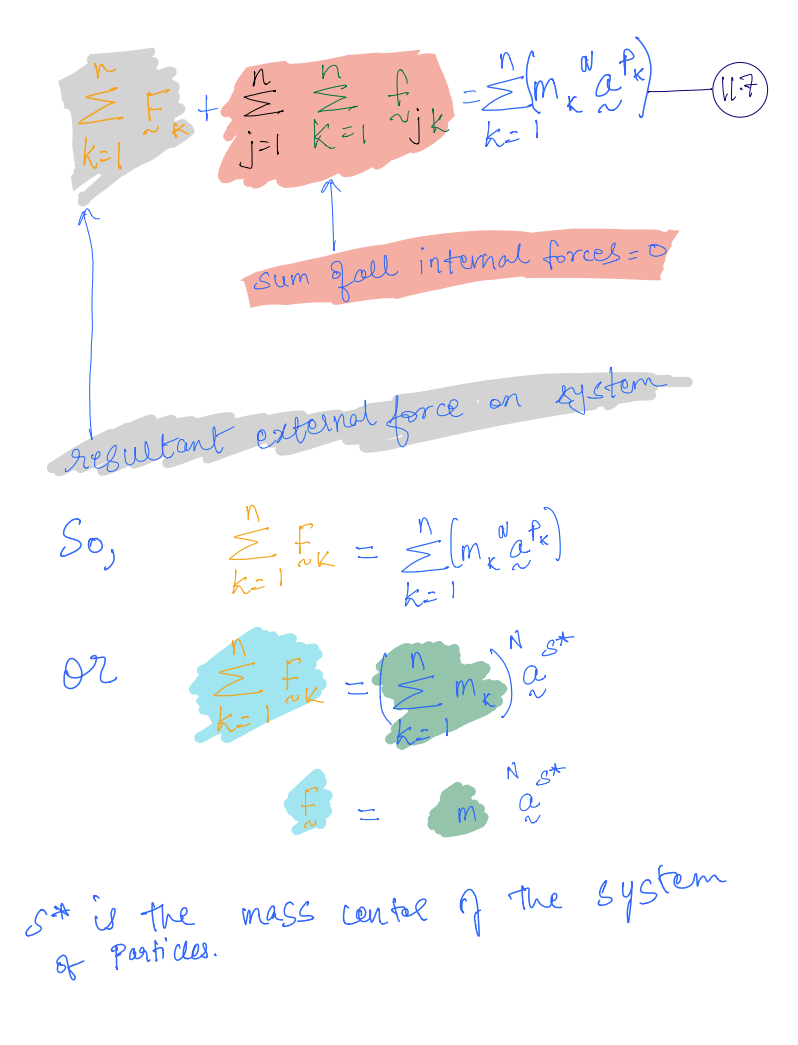 $\sum_{k=1}^{n} \underset{\sim}{F}_{k} + \sum_{j=1}^{n} \sum_{k=1}^{n} \underset{\sim}{f}_{jk} = \sum_{k=1}^{n} \left( m_{k} {}^{N}\underset{\sim}{a}^{P_{k}} \right)$ — 11.7
sum of all internal forces = 0
resultant external force on system
So, $\sum_{k=1}^{n} \underset{\sim}{F}_{k} = \sum_{k=1}^{n} \left( m_{k} {}^{N}\underset{\sim}{a}^{P_{k}} \right)$
or $\sum_{k=1}^{n} \underset{\sim}{F}_{k} = \left( \sum_{k=1}^{n} m_{k} \right) {}^{N}\underset{\sim}{a}^{S^*}$
$\underset{\sim}{F} = m \, {}^{N}\underset{\sim}{a}^{S^*}$
S* is the mass center of the system
of Particles.